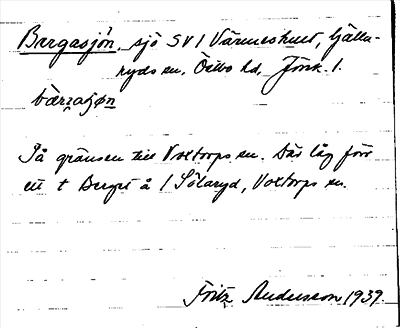 Bergasjön, sjö SV / Värmeshult, Gälla-
ryds sn, Östbo hd, Jönk. l.
bærɡasjøn
På gränsen till Voxtorps sn. Där låg förr
ett t Berget å / Sölaryd, Voxtorps sn.
Fritz Andersson 1939.